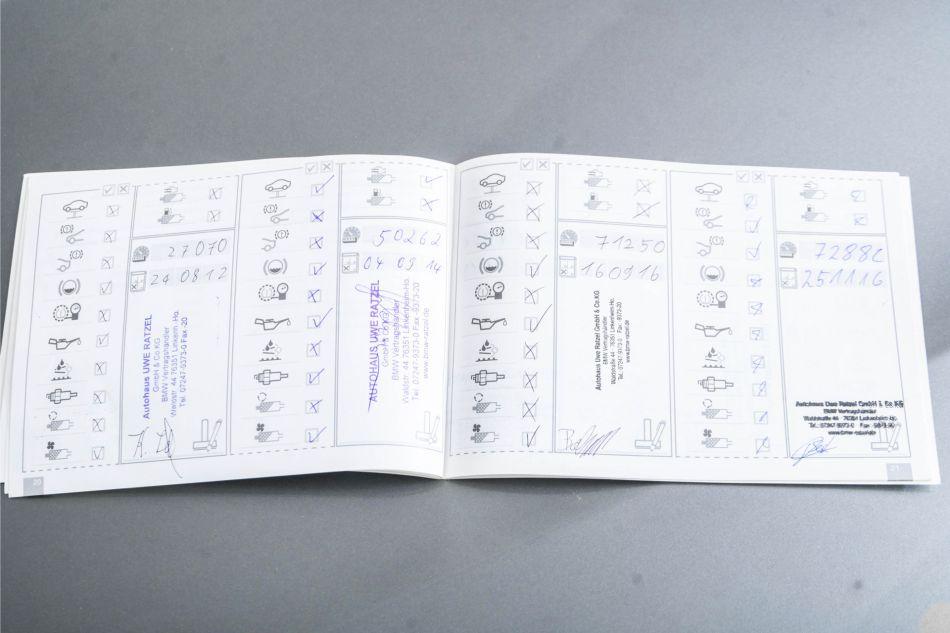 27070
240812
Autohaus UWE RATZEL
GmbH & Co KG
BMW Vertragshändler
Waldstr. 44 76351 Linkenh.-Ho.
Tel. 07247-9373-0 Fax -20
20
50262
04 09 14
AUTOHAUS UWE RATZEL
GmbH & Co KG
BMW Vertragshändler
Waldstr. 44 76351 Linkenheim-Ho.
Tel. 07247/9373-0 Fax -9373-20
www.bmw-ratzel.de
71250
160916
Autohaus Uwe Ratzel GmbH & Co.KG
BMW Vertragshändler
Waldstraße 44 · 76351 Linkenheim-Ho.
Tel. 07247-9373-0 Fax -9373-20
www.bmw-ratzel.de
7288
251116
Autohaus Uwe Ratzel GmbH & Co KG
BMW Vertragshändler
Waldstraße 44 · 76351 Linkenheim-Ho.
Tel. 07247-9373-0 Fax -9373-20
www.bmw-ratzel.de
21